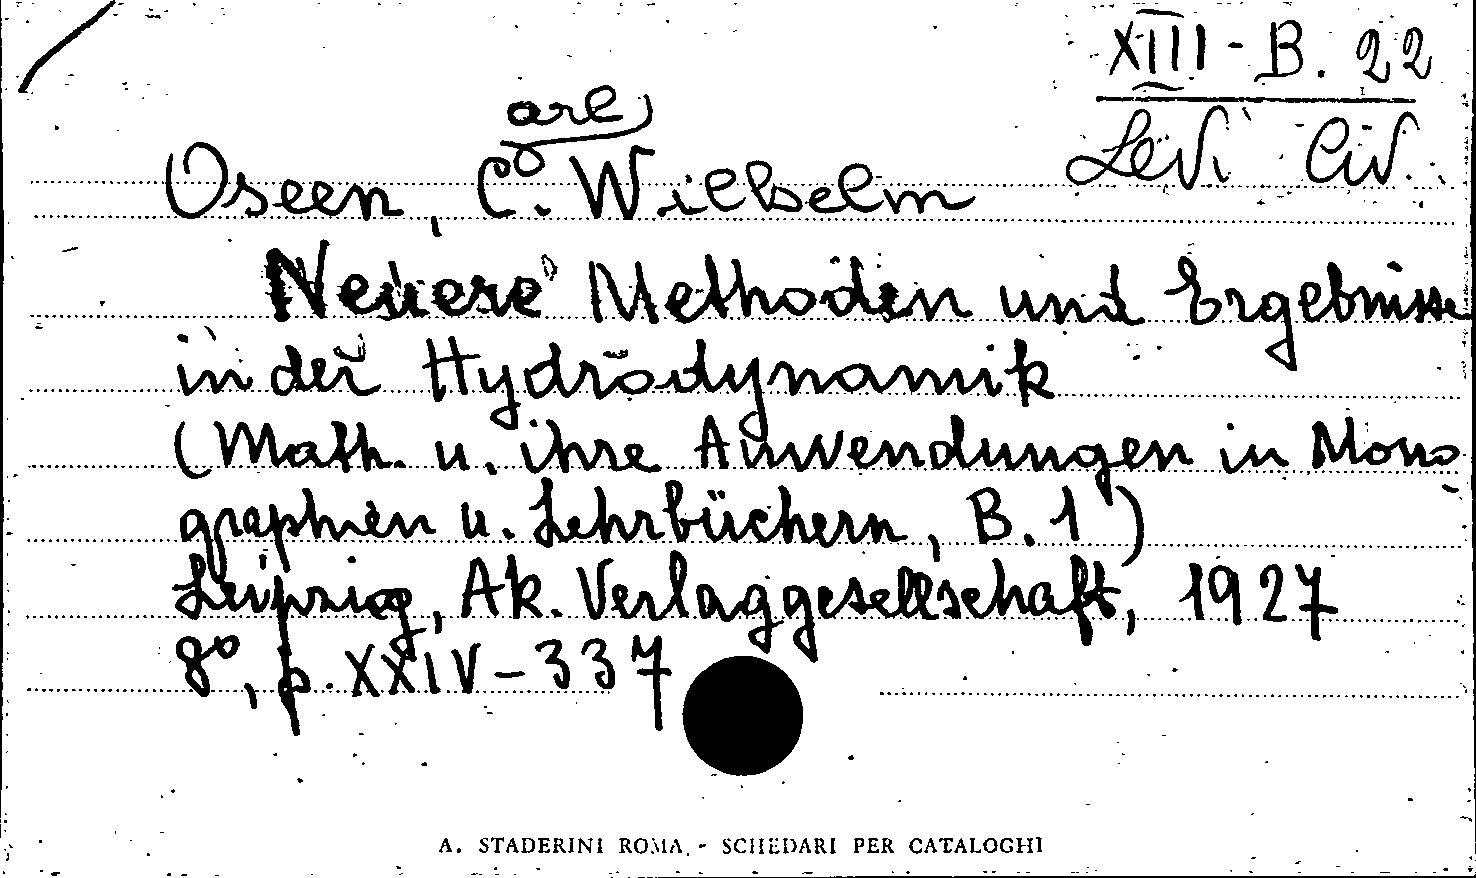 XIII - B. 22
Levi Civ.
arl
Oseen, C. Wilhelm
Neuere Methoden und Ergebnisse
in der Hydrodynamik
(Math. u. ihre Anwendungen in Mono
graphien u. Lehrbüchern, B. 1)
Leipzig, Ak. Verlaggesellschaft, 1927
8°, p. XXIV - 337
A. STADERINI ROMA. - SCHEDARI PER CATALOGHI